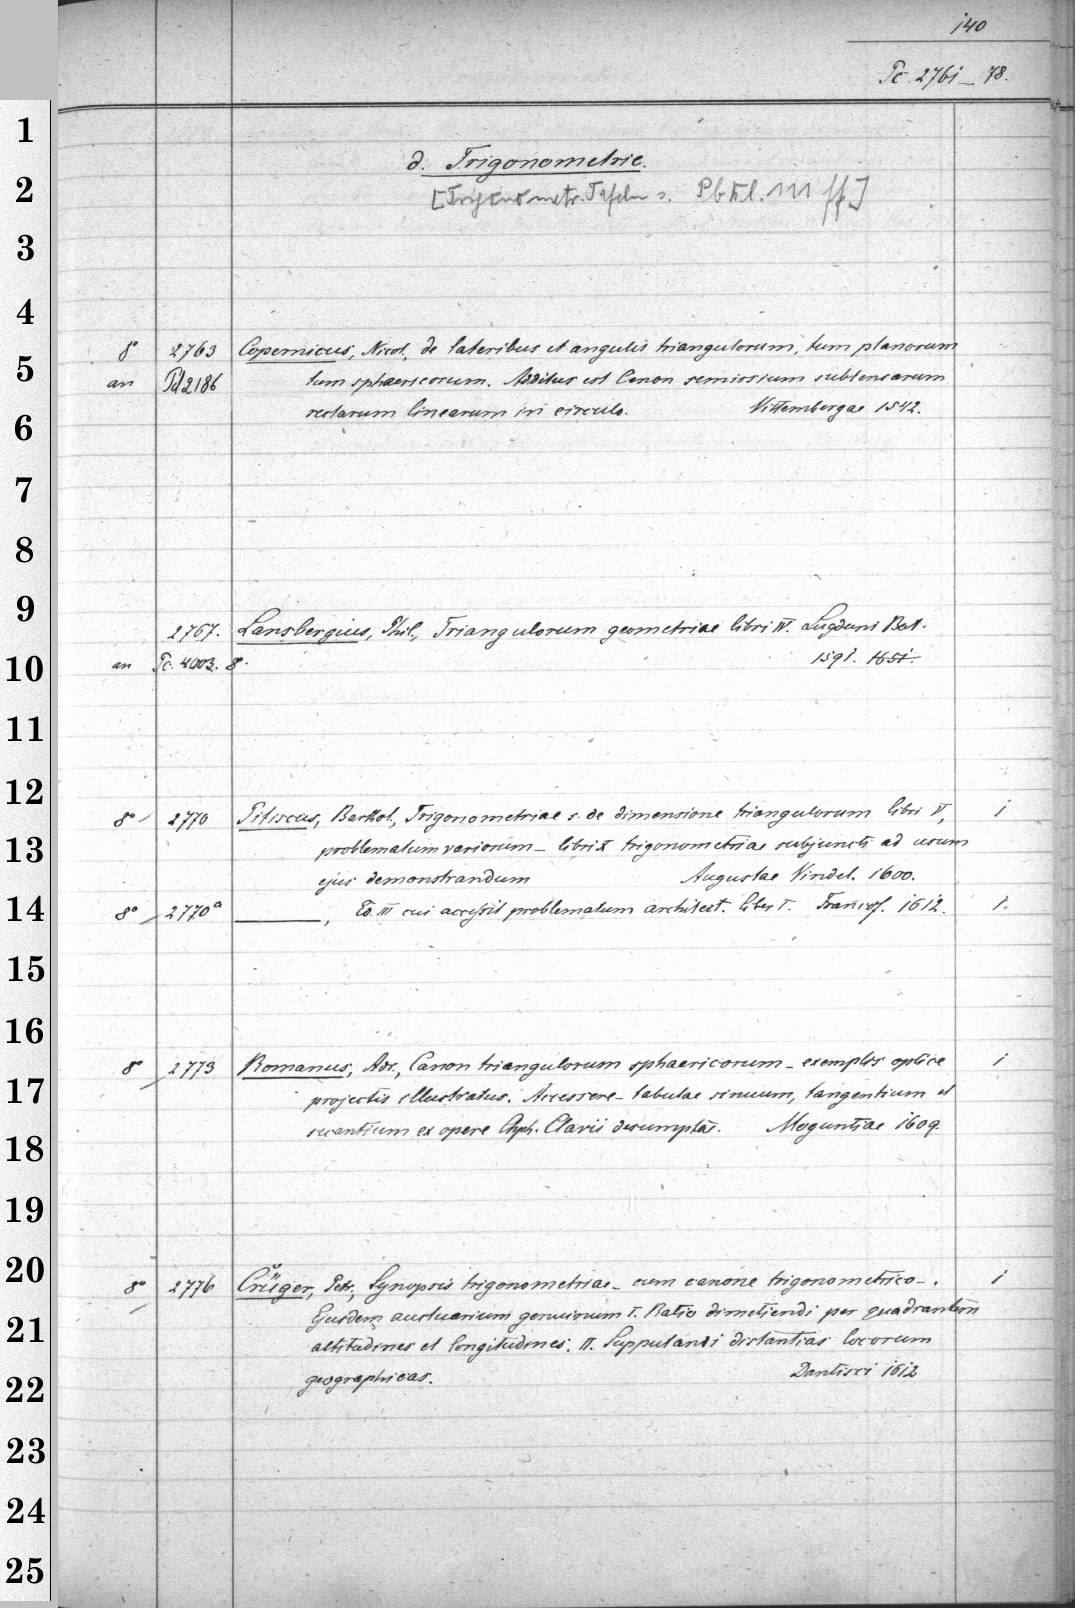 140
Pc. 2761_78.
1
d. Trigonometrie.
2
[Trigonometr. Tafeln s. Pb Kl. 111 ff]
3
4
8° 2763 Copernicus, Nicol., de lateribus et angulis triangulorum, tum planorum
5
an Pd 2186 tum sphaericorum. Additus est Canon semissium subtensarum
rectarum linearum in circulo. Vittembergae 1542.
6
7
8
9
2767. Lansbergius, Phil., Triangulorum geometriae libri IV. Lugduni Bat.
10
an Pc. 4003. 8°. 1591. 1651.
11
12
8° 2770 Pitiscus, Barthol., Trigonometriae s. de dimensione triangulorum libri V, 1
13
problematum variorum _ libri X trigonometriae subjuncti ad usum
ejus demonstrandum Augustae Vindel. 1600.
14
8° 2770a ______, Ed. III cui accessit problematum architect. liber I. Francof. 1612. 1.
15
16
8° 2773 Romanus, Adr., Canon triangulorum sphaericorum _ exemplis optice 1
17
projectis illustratus. Accessere _ tabulae sinuum, tangentium et
secantium ex opere Chph. Clavii desumptae. Moguntiae 1609.
18
19
20
8° 2776 Crüger, Petr., Synopsis trigonometriae _ cum canone trigonometrico _. 1
Ejusdem auctuarium geminum I. Ratio dimetiendi per quadrantem
21
altitudines et longitudines; II. Supputandi distantias locorum
22
geographicas. Dantisci 1612
23
24
25